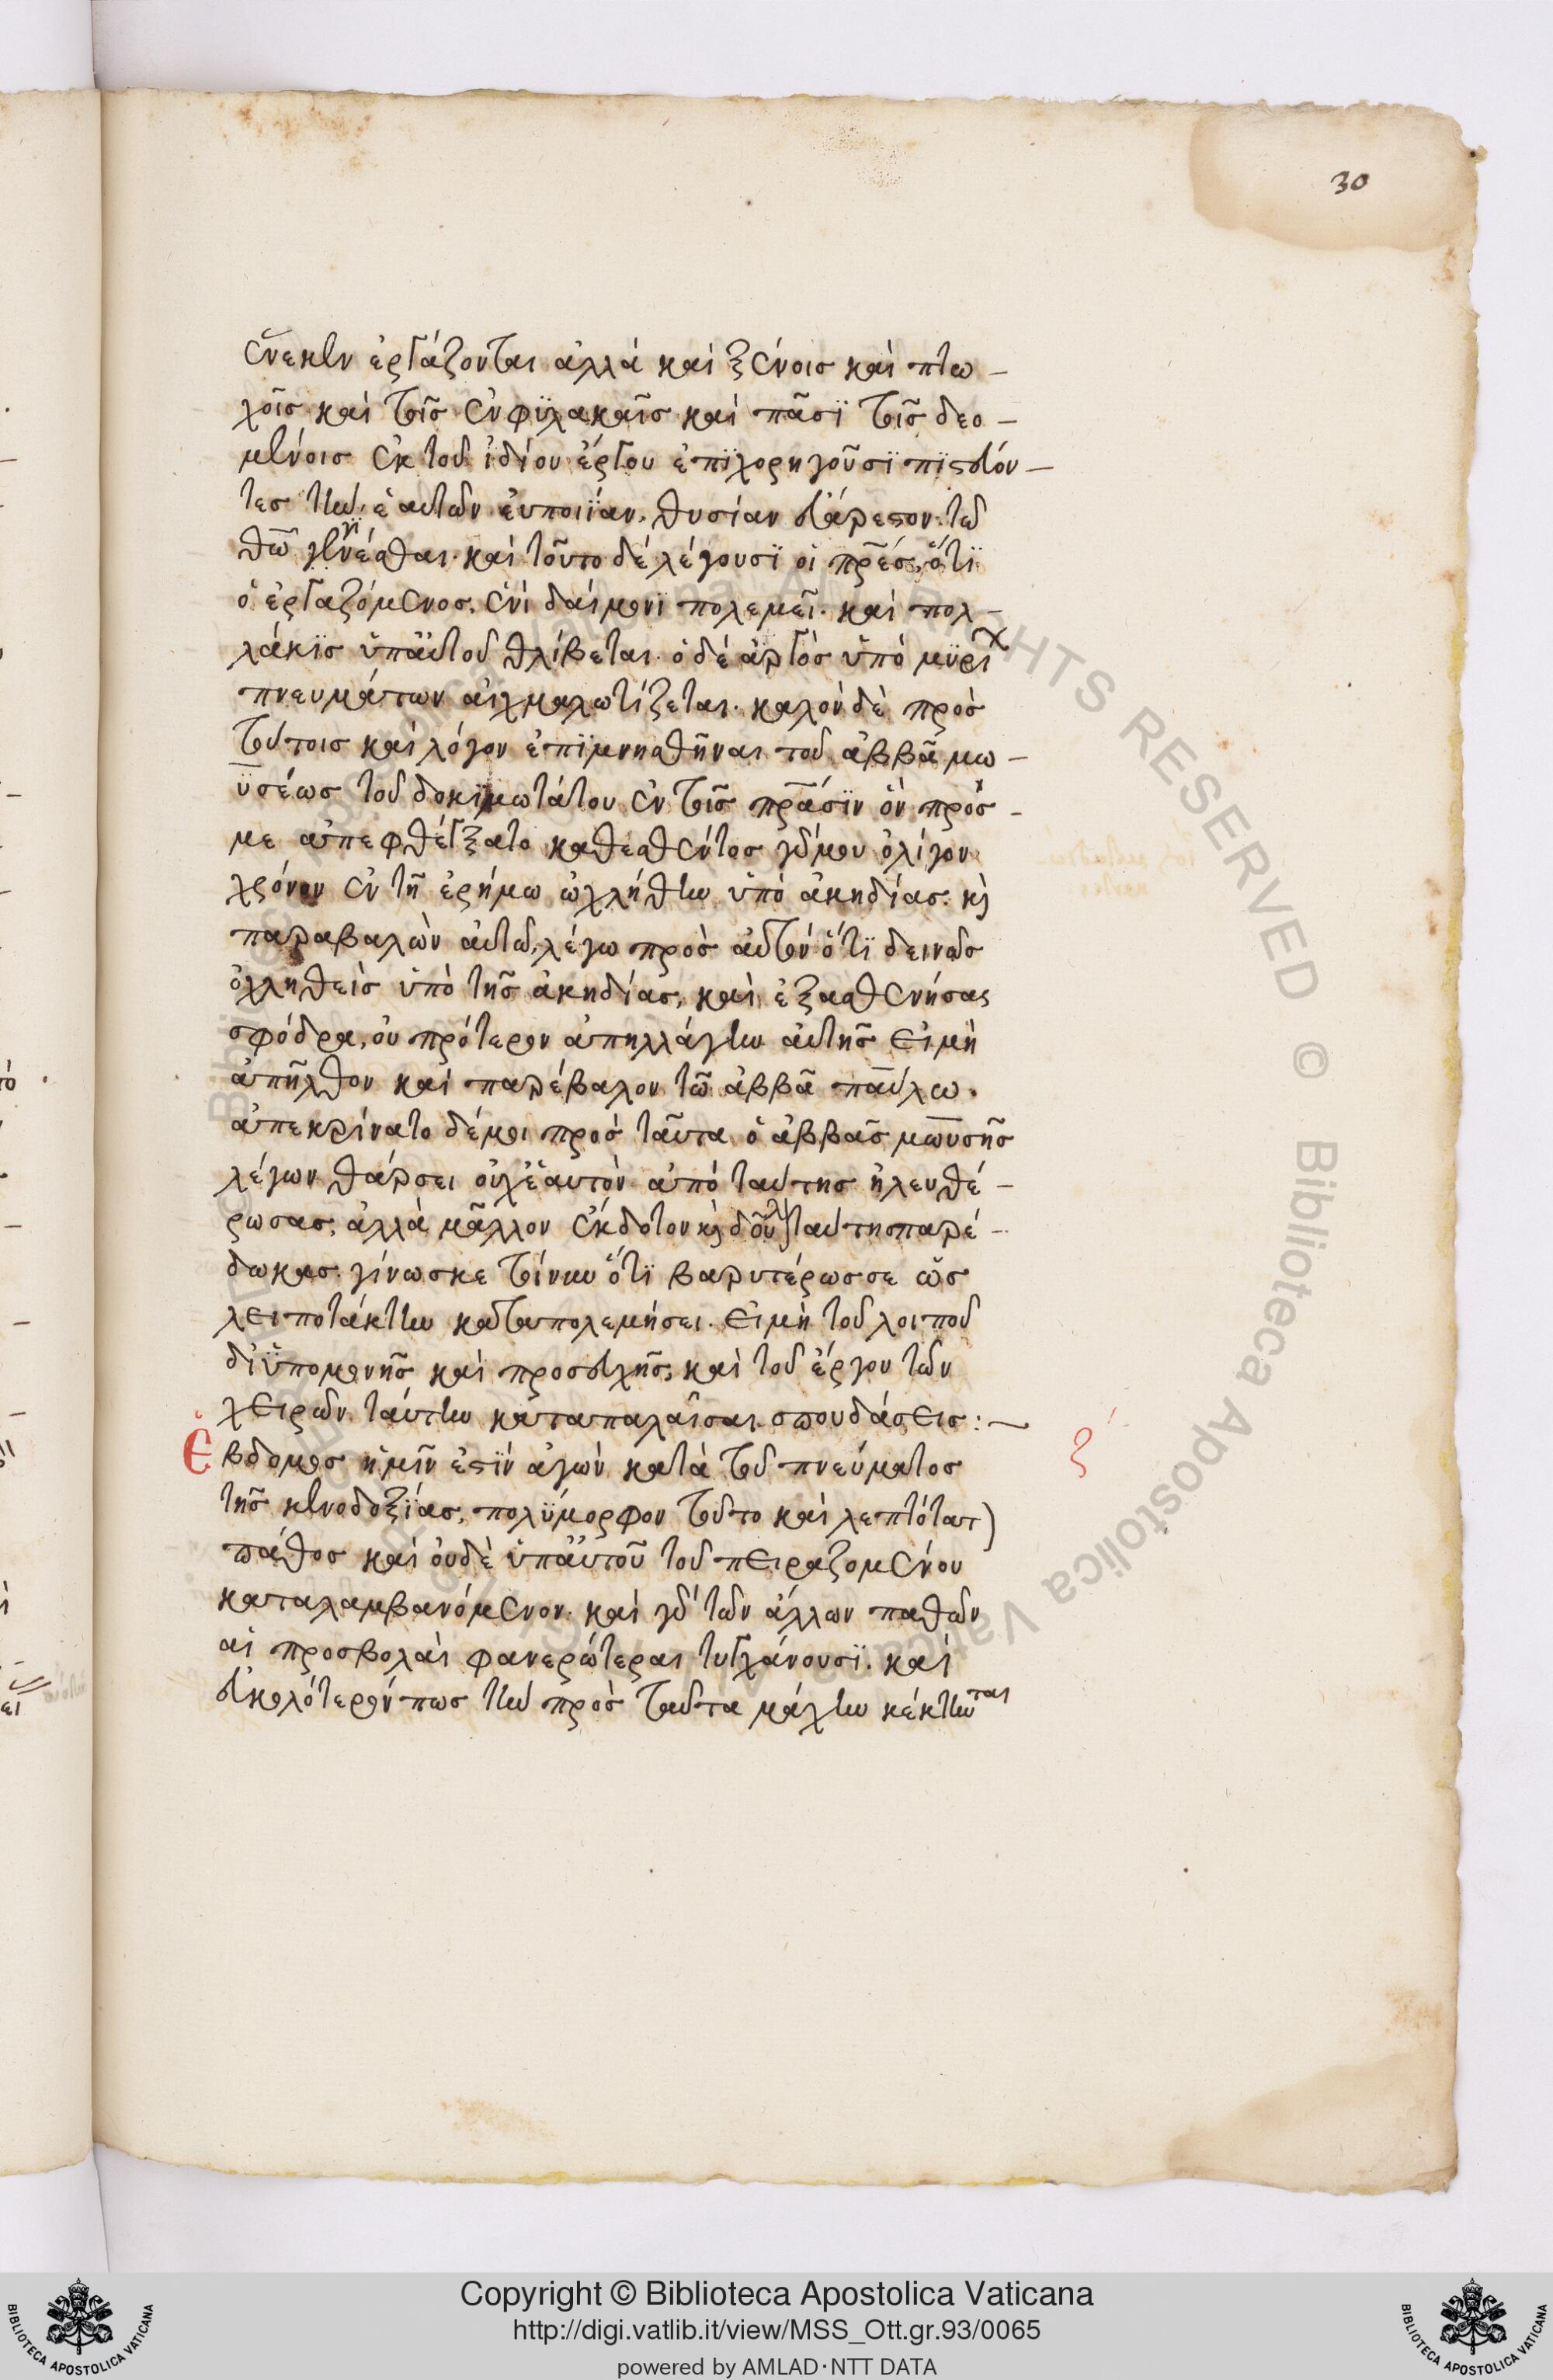 30
ἕνεκεν ἐργάζονται ἀλλὰ καὶ ξένοις καὶ πτω-
χοῖς καὶ τοῖς ἐν φϋλακαῖς καὶ πᾶσϊ τοῖς δεο-
μένοις ἐκ τοῦ ἰδίου ἔργου ἐπϊχορηγοῦσϊ πϊστεύον-
τες τὴν ἑαυτῶν εὐποιΐαν, θυσίαν εὐάρεστον τῶ
θῶ γενέσθαι· καὶ τοῦτο δὲ λέγουσϊ οἱ πρ̅ες, ὅτϊ
ὁ ἐργαζόμενος, ἑνὶ δαίμονϊ πολεμεῖ· καὶ πολ-
λάκϊς ὑπ' αὐτοῦ θλίβεται· ὁ δὲ ἀργὸς ὑπὸ μϋρί
πνευμάτων αἰχμαλωτίζεται· καλὸν δὲ πρὸς
τούτοις καὶ λόγον ἐπϊμνησθῆναι τοῦ ἀββᾶ μω-
ϋσέως τοῦ δοκϊμωτάτου ἐν τοῖς πρ̅ασϊν ὃν πρός
με ἀπεφθέγξατο καθεσθέντος γάρ μου ὀλίγον
χρόνον ἐν τῆ ἐρήμω ὠχλήθην ὑπὸ ἀκηδίας. κὶ
παραβαλὼν αὐτῶ, λέγω πρὸς αὐτόν ὅτϊ δεινῶς
ὀχληθεὶς ὑπὸ τῆς ἀκηδίας, καὶ ἐξασθενήσας
σφόδρα, οὐ πρότερον ἀπηλλάγην αὐτῆς εἰ μὴ
ἀπῆλθον καὶ παρέβαλον τῶ ἀββᾶ παύλω.
ἀπεκρίνατο δέ μοι πρὸς ταῦτα ὁ ἀββᾶς μωυσῆς
λέγων θάρσει οὐχ ἑαυτὸν ἀπὸ ταύτης ἠλευθέ-
ρωσας, ἀλλὰ μᾶλλον ἔκδοτον κὶ δοῦλ ταύτης παρέ-
δωκας. γίνωσκε τοίνυν ὅτϊ βαρυτέρως σε ὡς
λειποτάκτην καταπολεμήσει. εἰ μὴ τοῦ λοιποῦ
δι' ὑπομονῆς καὶ προσευχῆς, καὶ τοῦ ἔργου τῶν
χειρῶν ταύτην καταπαλαῖσαι σπουδάσεις:
Ἕβδομος ἡμῖν ἐστϊν ἀγὼν κατὰ τοῦ πνεύματος ζ
τῆς κενοδοξΐας, πολΰμορφον τοῦτο καὶ λεπτότατ
πάθος καὶ οὐδὲ ὑπ' αὐτοῦ τοῦ πειραζομένου
καταλαμβανόμενον. καὶ γὰρ τῶν ἄλλων παθῶν
αἱ προσβολαὶ φανερώτεραι τυγχάνουσϊ. καὶ
εὐκολότερόν πως τὴν πρὸς ταῦτα μάχην κέκτηνται
Copyright © Biblioteca Apostolica Vaticana
http://digi.vatlib.it/view/MSS_Ott.gr.93/0065
powered by AMLAD·NTT DATA
BIBLIOTECA APOSTOLICA VATICANA
BIBLIOTECA APOSTOLICA VATICANA